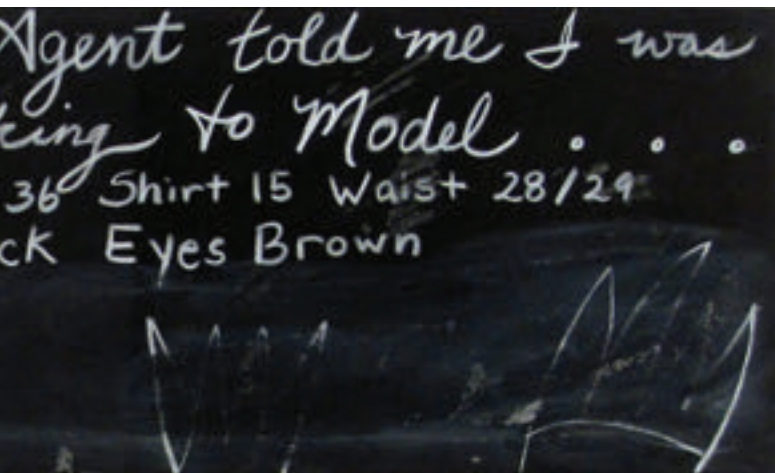 Agent told me I was
king to Model . . .
36 Shirt 15 Waist 28/29
ck Eyes Brown